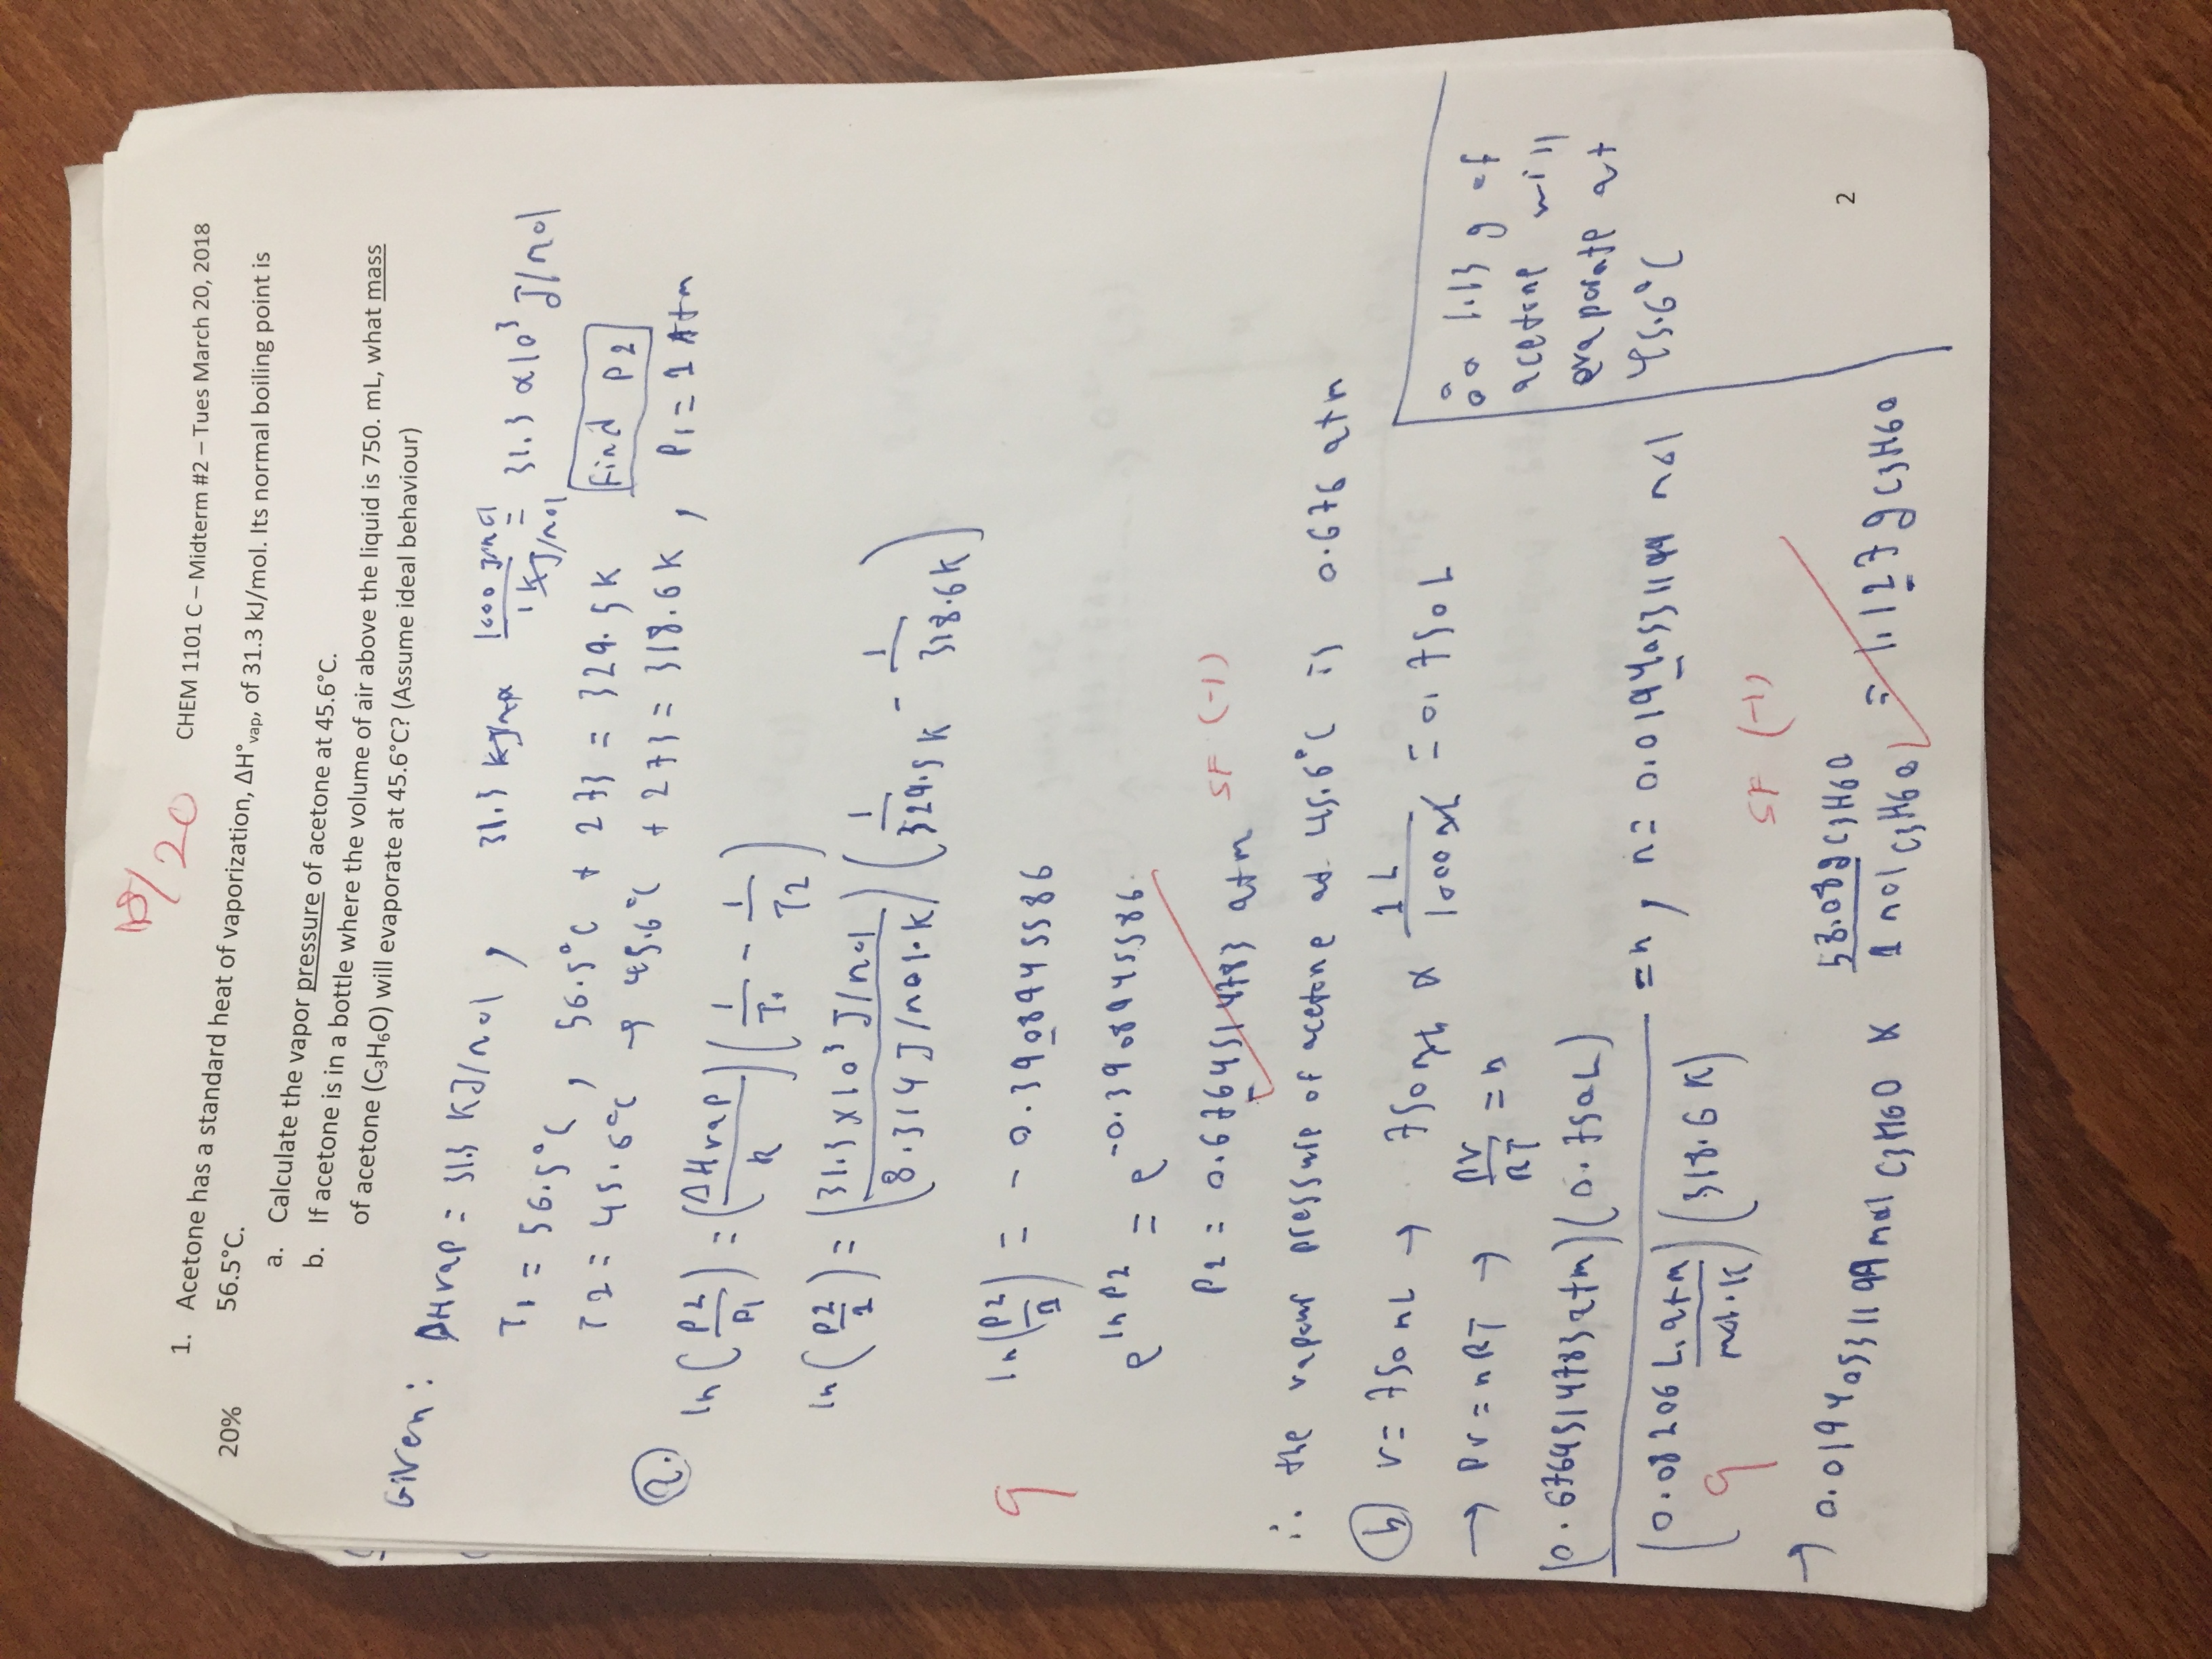 18/20
CHEM 1101 C – Midterm #2 – Tues March 20, 2018
20%
1. Acetone has a standard heat of vaporization, ΔH°vap, of 31.3 kJ/mol. Its normal boiling point is
56.5°C.
a. Calculate the vapor pressure of acetone at 45.6°C.
b. If acetone is in a bottle where the volume of air above the liquid is 750. mL, what mass
of acetone (C3H6O) will evaporate at 45.6°C? (Assume ideal behaviour)
Given: ΔHvap = 31.3 KJ/mol, 31.3 KJ/mol 1000 J/mol / 1 KJ/mol = 31.3 x 10³ J/mol
T1 = 56.5°C, 56.5°C + 273 = 329.5K
Find P2
T2 = 45.6°C → 45.6°C + 273 = 318.6K, P1 = 1 Atm
a. ln(P2/P1) = (ΔHvap/R)(1/T1 - 1/T2)
ln(P2/1) = (31.3 x 10³ J/mol / 8.314 J/mol·K)(1/329.5K - 1/318.6K)
9
ln(P2/1) = -0.3908945586
e^lnP2 = e^-0.3908945586
P2 = 0.6764514783 atm SF (-1)
∴ the vapour pressure of acetone at 45.6°C is 0.676 atm
b V = 750 mL → 750 mL x 1 L / 1000 mL = 0.750L
→ PV = nRT → PV/RT = n
(0.6764514783 atm)(0.750L) / (0.08206 L·atm/mol·K)(318.6 K) = n, n = 0.01940531199 mol
9
SF (-1)
→ 0.01940531199 mol C3H6O x 58.08g C3H6O / 1 mol C3H6O = 1.127 g C3H6O
∴ 1.13 g of
acetone will
evaporate at
45.6°C
2